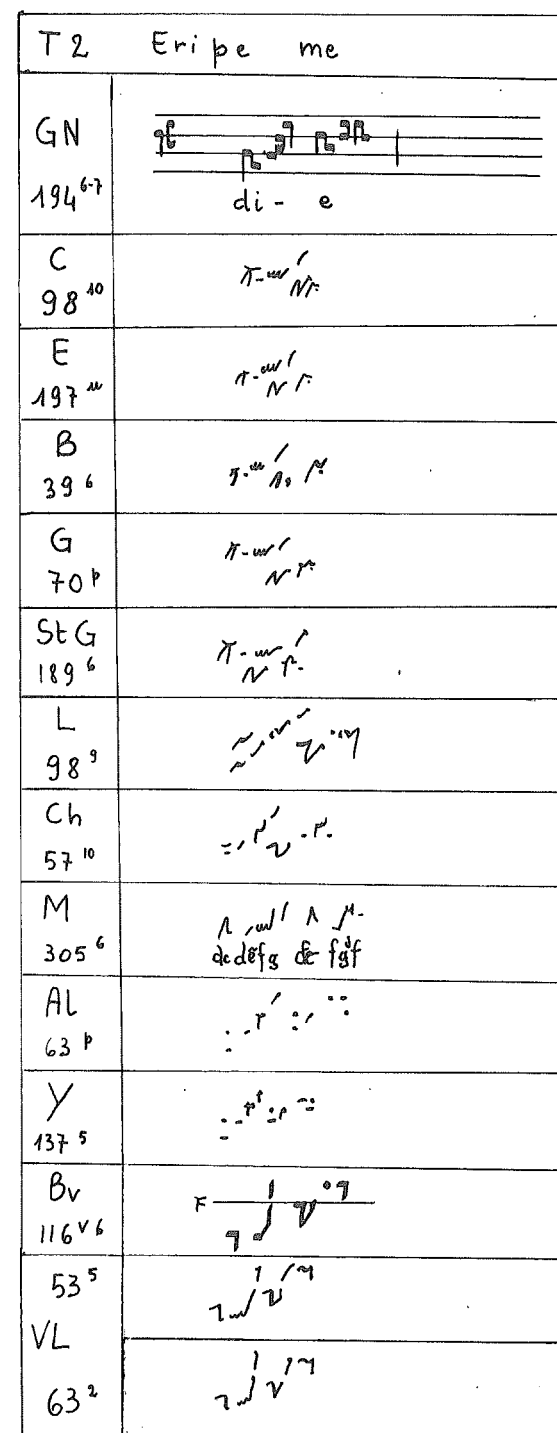 T2 Eripe me
GN
194⁶⁻⁷
di - e
C
98¹⁰
E
197¹¹
B
39⁶
G
70ᵖ
StG
189⁶
L
98⁹
Ch
57¹⁰
M
305⁶
Al
63ᵖ
Y
137⁵
Bv
116ᵛ⁶
F
53⁵
VL
63²